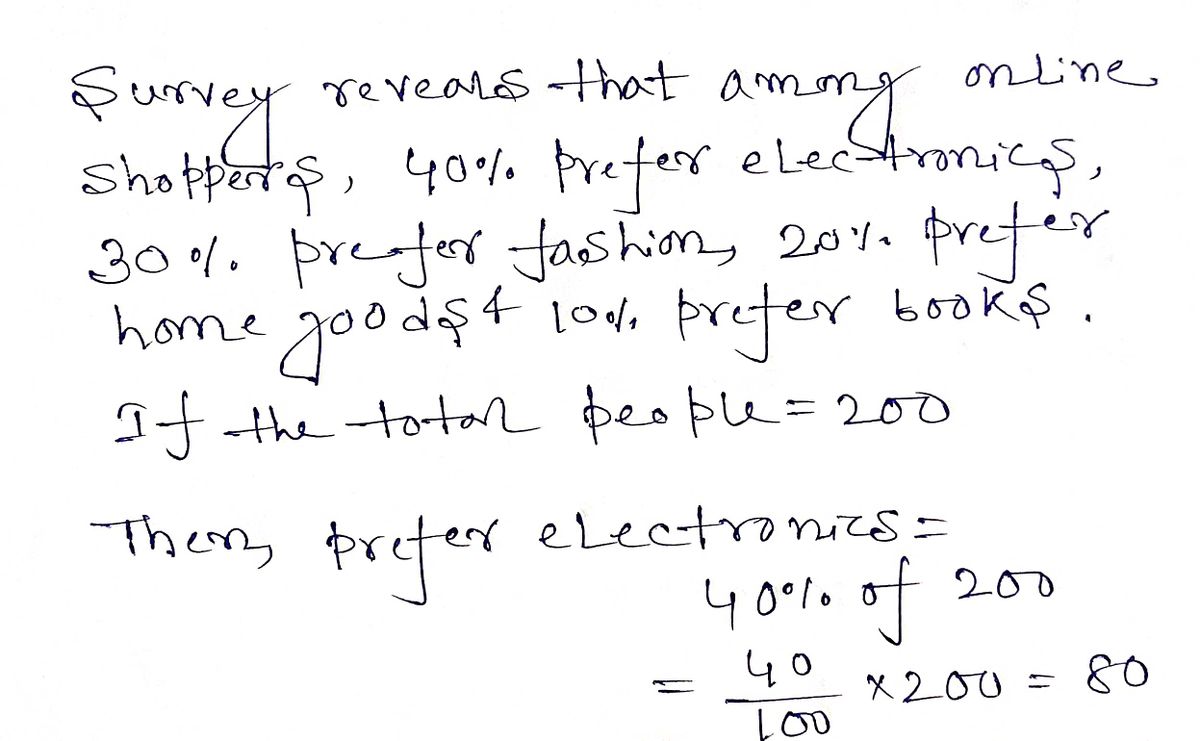 Survey reveals that among online
shoppers, 40% prefer electronics,
30% prefer fashion, 20% prefer
home goods & 10% prefer books.
If the total people = 200
Then, prefer electronics =
40% of 200
= 40/100 × 200 = 80